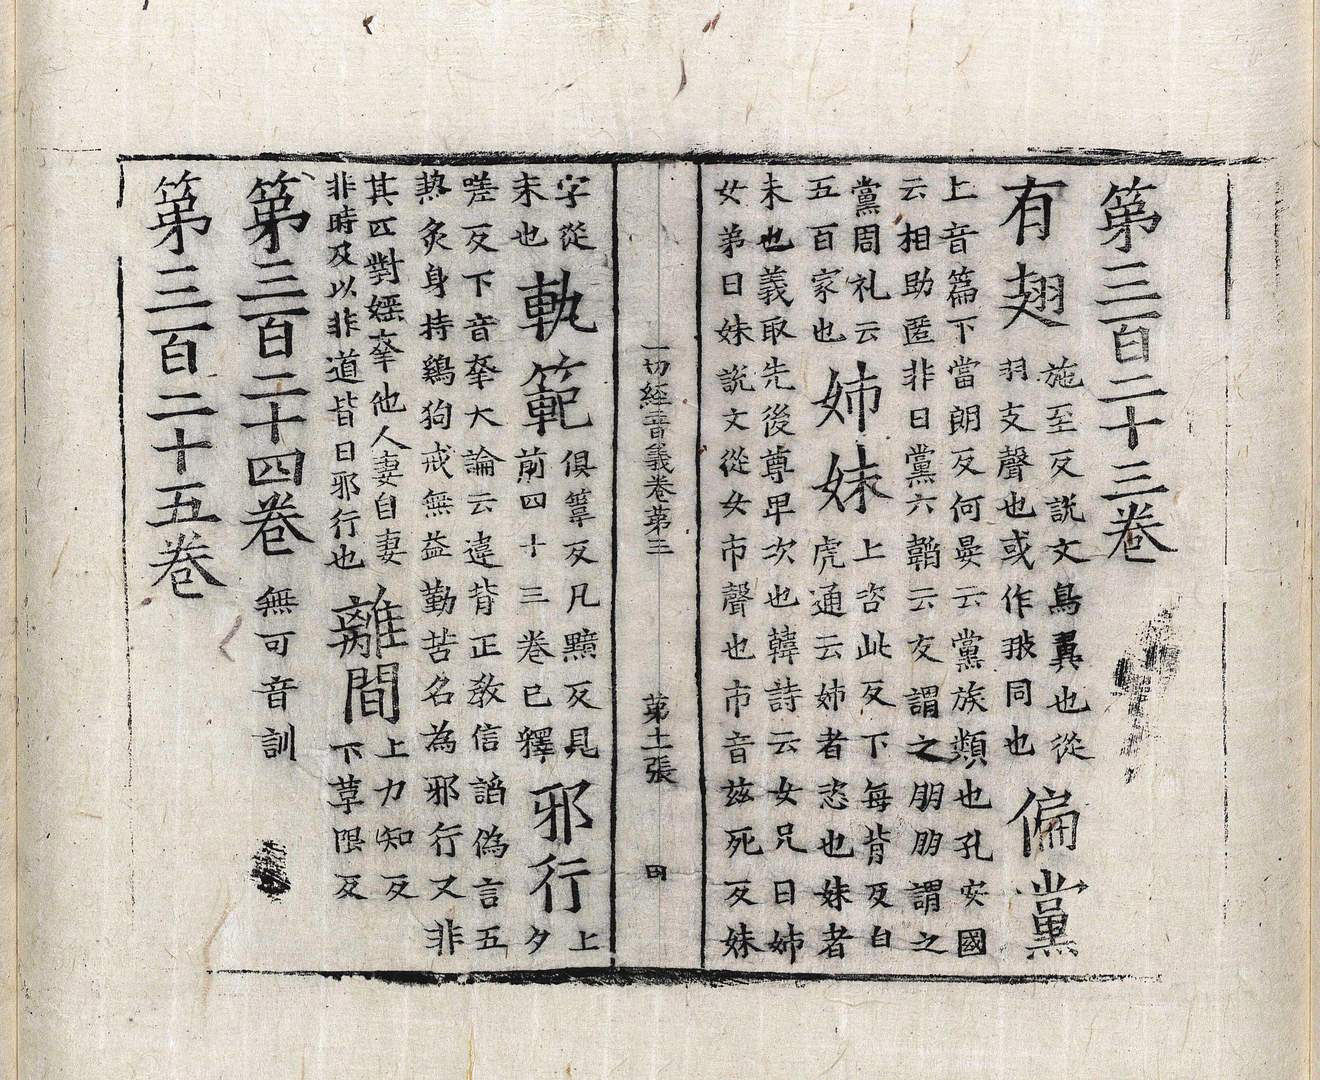 第三百二十三卷
有翅
施至反説文鳥翼也從
羽支聲也或作翄同也
偏黨
上音篇下當朗反何晏云黨族類也孔安國
云相助匿非曰黨六韜云友謂之朋朋謂之
黨周礼云
五百家也
姉妹
上咨此反下每背反白
虎通云姉者恣也妹者
未也義取先後尊卑次也韓詩云女兄曰姉
女弟曰妹説文從女市聲也市音茲死反妹
一切經音義卷第三 第十一張 田
字從
未也
軌範
俱葦反凡黯反見
前四十三卷已釋
邪行
上
夕
嗟反下音㚔大論云違背正教信諂偽言五
熱炙身持鷄狗戒無益勤苦名為邪行又非
其匹對婬㚔他人妻自妻
非時及以非道皆曰邪行也
離間
上力知反
下草限反
第三百二十四卷 無可音訓
第三百二十五卷